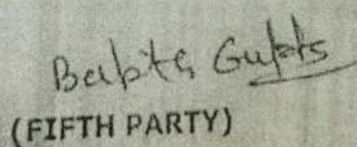 Babita Gupta
(FIFTH PARTY)